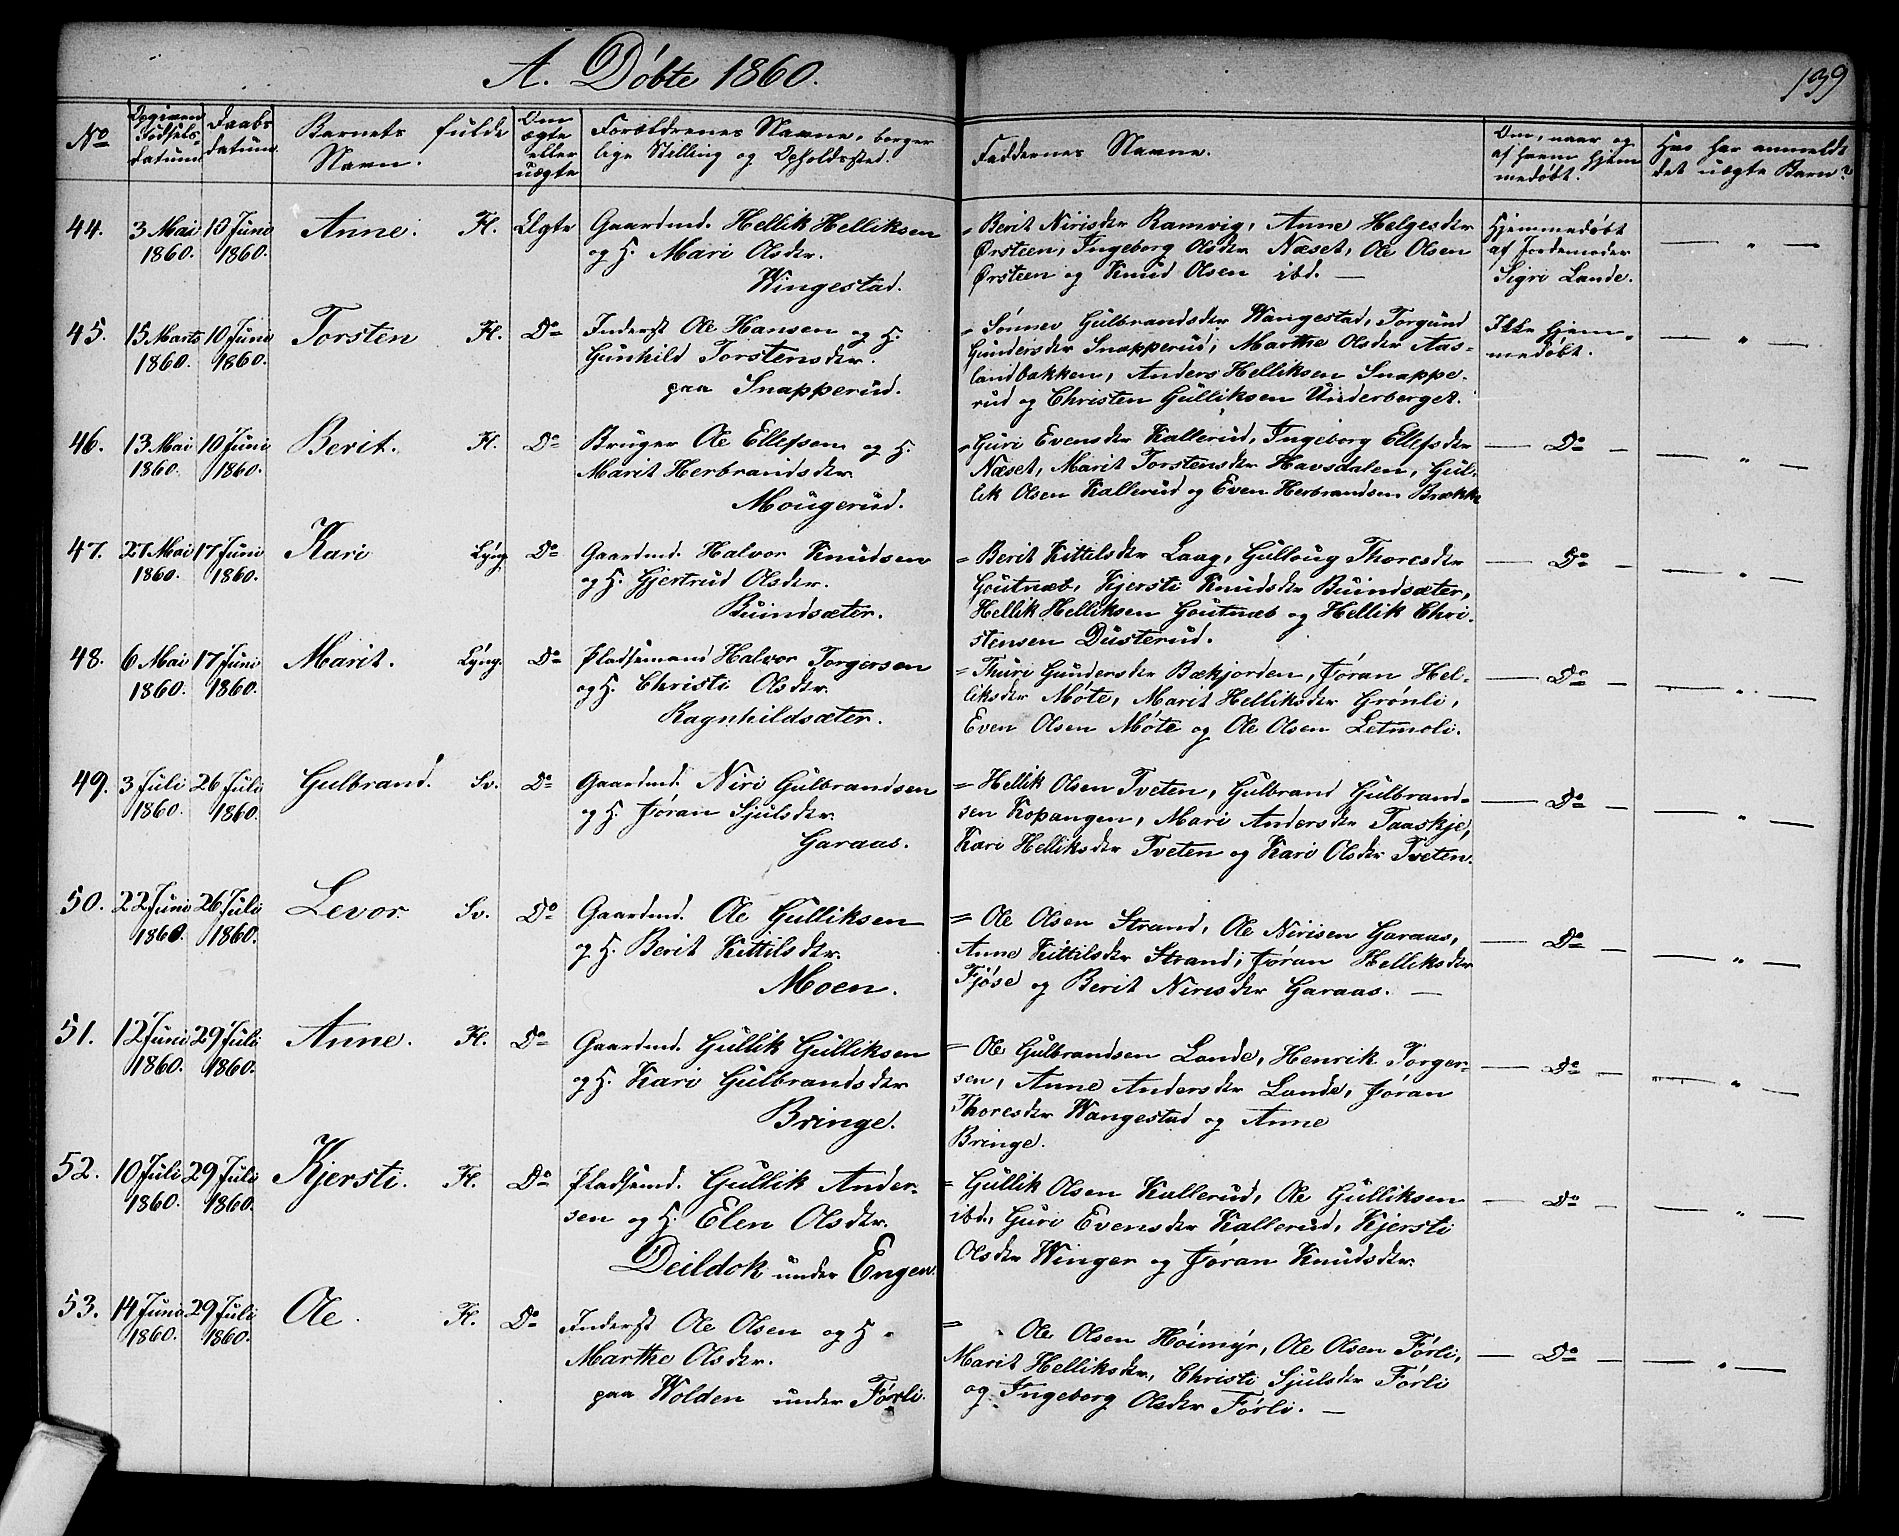 A. Döbte 1860.
139
No
Opgiven Fødsels-datum
Daabs datum
Barnets fulde Navn.
Om ægte eller uægte
Forældrenes Navne, borgerlige Stilling og Opholdssted.
Faddernes Navne.
Om, naar og af hvem hjemmedøbt.
Hvo har anmeldt det uægte Barn?
44. 3 Mai 1860. 10 Juni 1860. Anne. Fl. Ægte
Gaardmd. Hellik Helliksen
og H. Mari Olsdtr.
Wingestad.
= Berit Nirisdtr Ramvig, Anne Helgesdtr
Ørsteen, Ingeborg Olsdtr Næset, Ole Olsen
Ørsteen og Knud Olsen ibd. —
Hjemmedøbt
af Jordemoder
Sigri Lande.
— " —
45. 15 Marts 1860. 10 Juni 1860. Torsten Fl. Do
Inderst Ole Hansen og H.
Gunhild Torstensdtr.
paa Snapperud.
= Sønnev Gulbrandsdtr Wangestad, Torgund
Gundersdtr Snapperud, Marthe Olsdtr Aas-
landbakken, Anders Helliksen Snappe-
rud og Christen Gulliksen Underberget.
Ikke hjem-
medøbt.
— " —
46. 13 Mai 1860. 10 Juni 1860. Berit. Fl. Do
Bruger Ole Ellefsen og H.
Marit Herbrandsdtr
Mougerud.
= Guri Evensdtr Kallerud, Ingeborg Ellefsdtr
Næset, Marit Torstensdtr Havsdalen, Gul-
lik Olsen Kallerud og Even Herbrandsen Brække
— Do —
— " —
47. 27 Mai 1860. 17 Juni 1860. Kari Lyng. Do
Gaardmd. Halvor Knudsen
og H. Gjertrud Olsdtr.
Buindsæter.
= Berit Kittilsdtr Laag, Gulloug Thoresdtr
Goutnæb, Kjersti Knudsdtr Buindsæter,
Hellik Helliksen Goutnæb og Hellik Chri-
stensen Dusterud.
— Do —
— " —
48. 6 Mai 1860. 17 Juni 1860. Marit. Lyng. Do
Pladsemand Halvor Torgersen
og H. Christi Olsdtr.
Ragnhildsæter.
= Thuri Gundersdtr Bækjorden, Jøran Hel-
liksdtr Møte, Marit Helliksdtr Grønli,
Even Olsen Møte og Ole Olsen Letmoli.
— Do —
— " —
49. 3 Juli 1860. 26 Juli 1860. Gulbrand. Sv. Do
Gaardmd. Niri Gulbrandsen
og H. Jøran Sjulsdtr.
Garaas.
= Hellik Olsen Tveten, Gulbrand Gulbrand-
sen Kopangen, Mari Andersdtr Taaskje,
Kari Helliksdtr Tveten og Kari Olsdtr Tveten.
— Do —
— " —
50. 22 Juni 1860. 26 Juli 1860. Levor Sv. Do
Gaardmd. Ole Gulliksen
og H. Berit Kittilsdtr.
Moen.
= Ole Olsen Strand, Ole Nirisen Garaas,
Anne Kittilsdtr Strand, Jøran Helliksdtr
Fjøse og Berit Nirisdtr Garaas. —
— Do —
— " —
51. 12 Juni 1860. 29 Juli 1860. Anne. Fl. Do
Gaardmd. Gullik Gulliksen
og H. Kari Gulbrandsdtr
Bringe.
= Ole Gulbrandsen Lande, Henrik Torger-
sen, Anne Andersdtr Lande, Jøran
Thoresdtr Wangestad og Anne
Bringe.
— Do —
— " —
52. 10 Juli 1860. 29 Juli 1860. Kjersti. Fl. Do
Pladsemd. Gullik Ander-
sen og H. Elen Olsdtr.
Deildok under Engen.
= Gullik Olsen Kallerud, Ole Gulliksen
ibd., Guri Evensdtr Kallerud, Kjersti
Olsdtr Winger og Jøran Knudsdtr.
— Do —
— " —
53. 14 Juni 1860. 29 Juli 1860. Ole. Fl. Do
Inderst Ole Olsen og H.
Marthe Olsdtr.
paa Wolden under Førli.
= Ole Olsen Høimyr, Ole Olsen Førli,
Marit Helliksdtr, Christi Sjulsdtr Førli
og Ingeborg Olsdtr Førli. —
— Do —
— " —